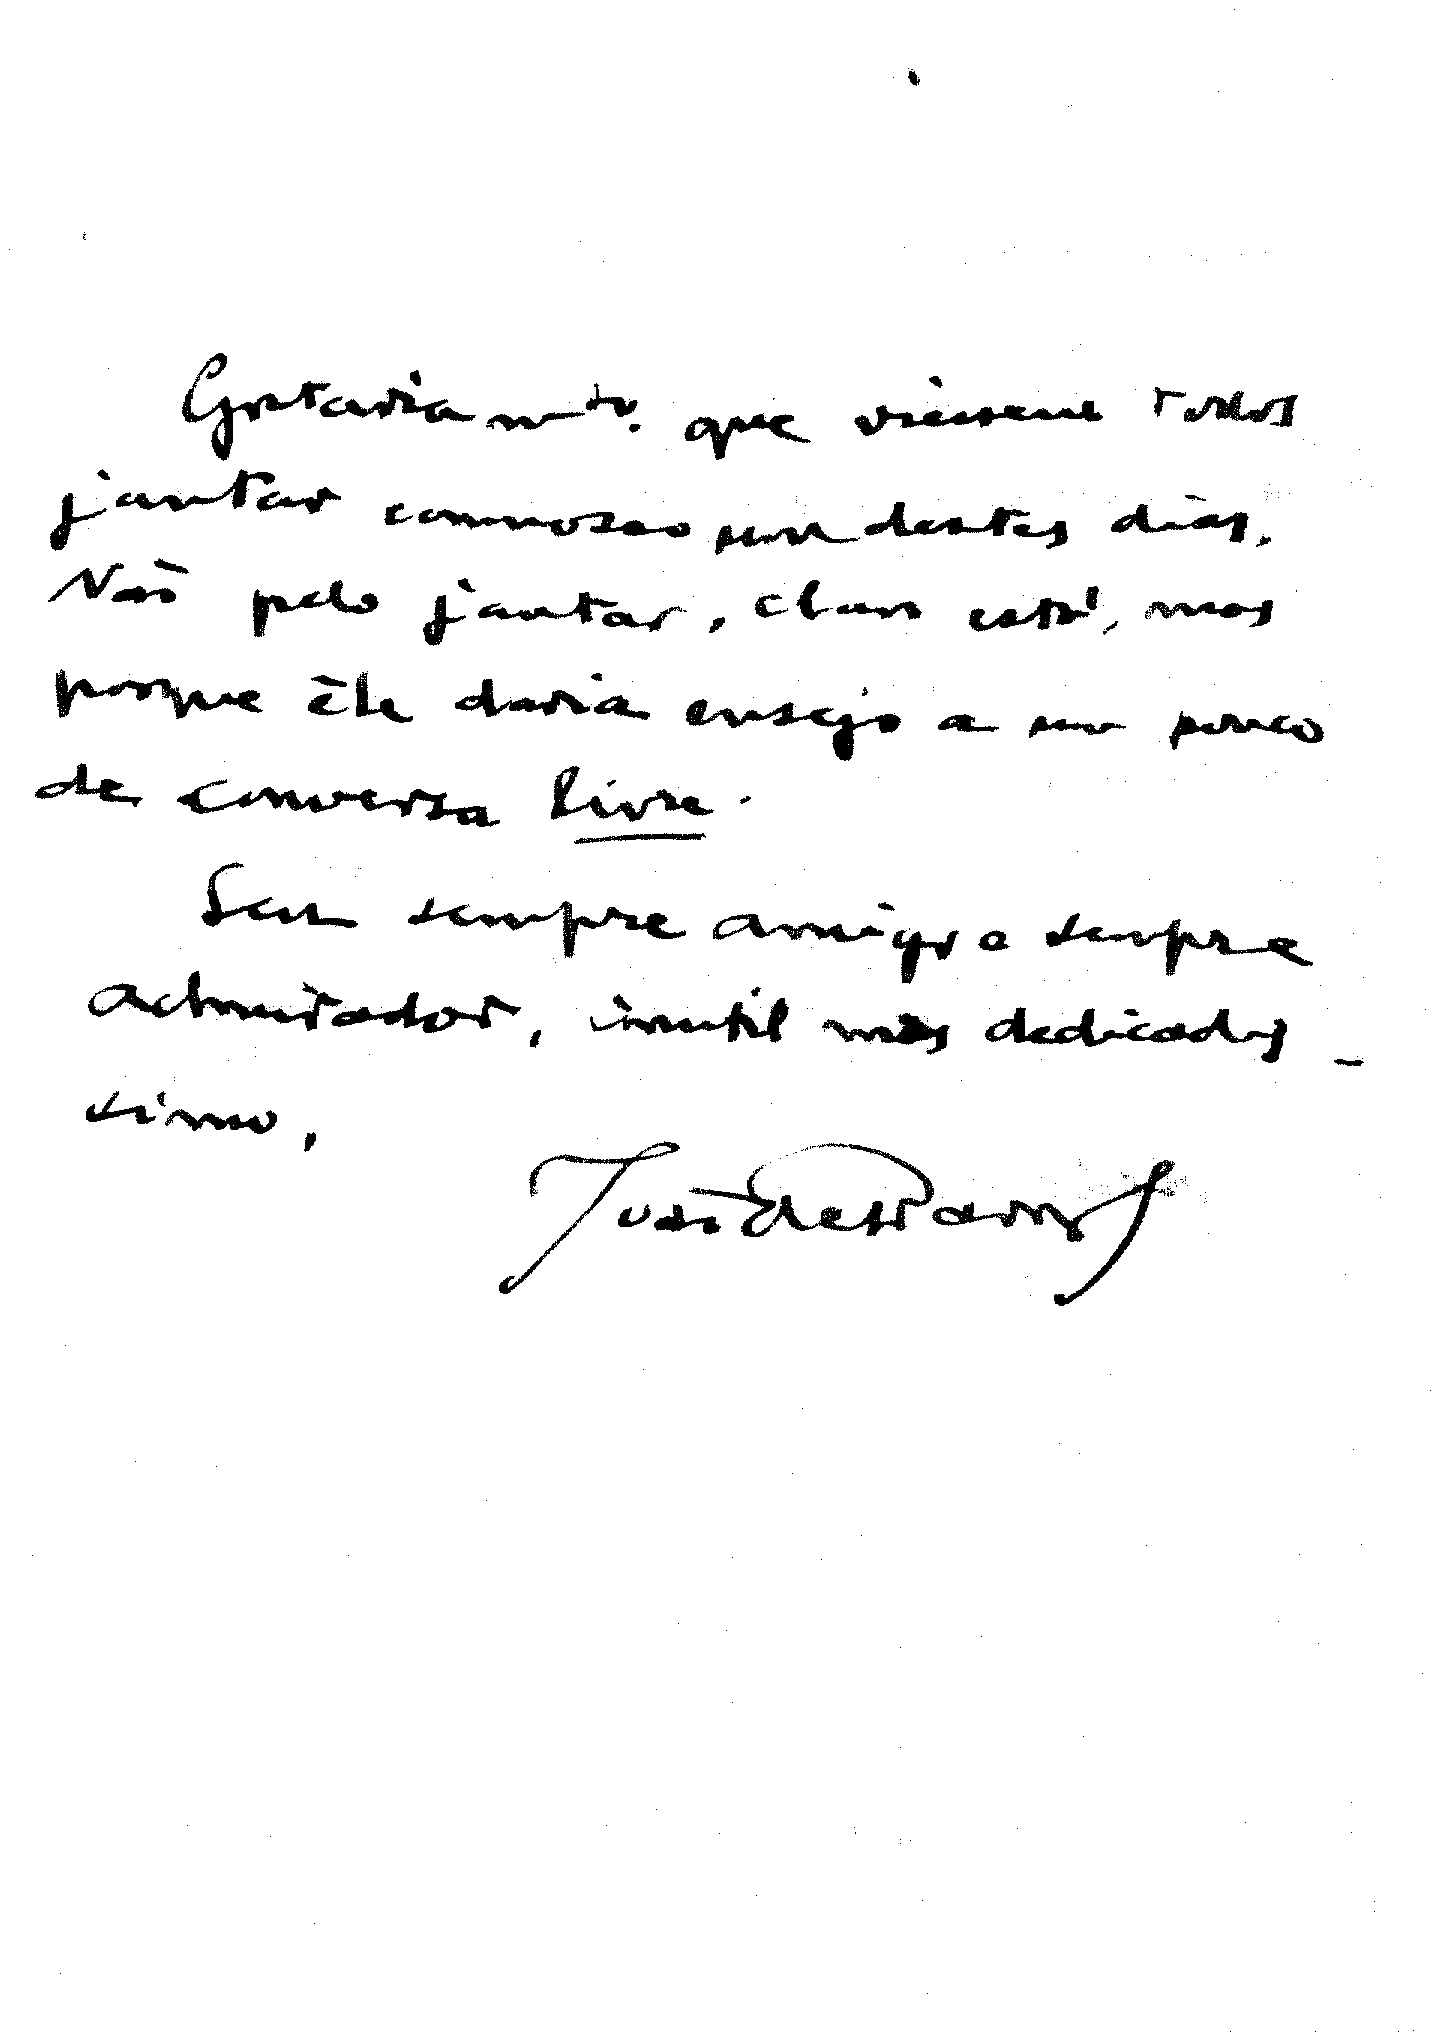 Gostaria mto. que viessem todos
jantar comnosco um destes dias.
Não pelo jantar, claro está, mas
porque êle daria ensejo a um pouco
de conversa livre.
Seu sempre amigo e sempre
admirador, inutil mas dedicadis-
simo,